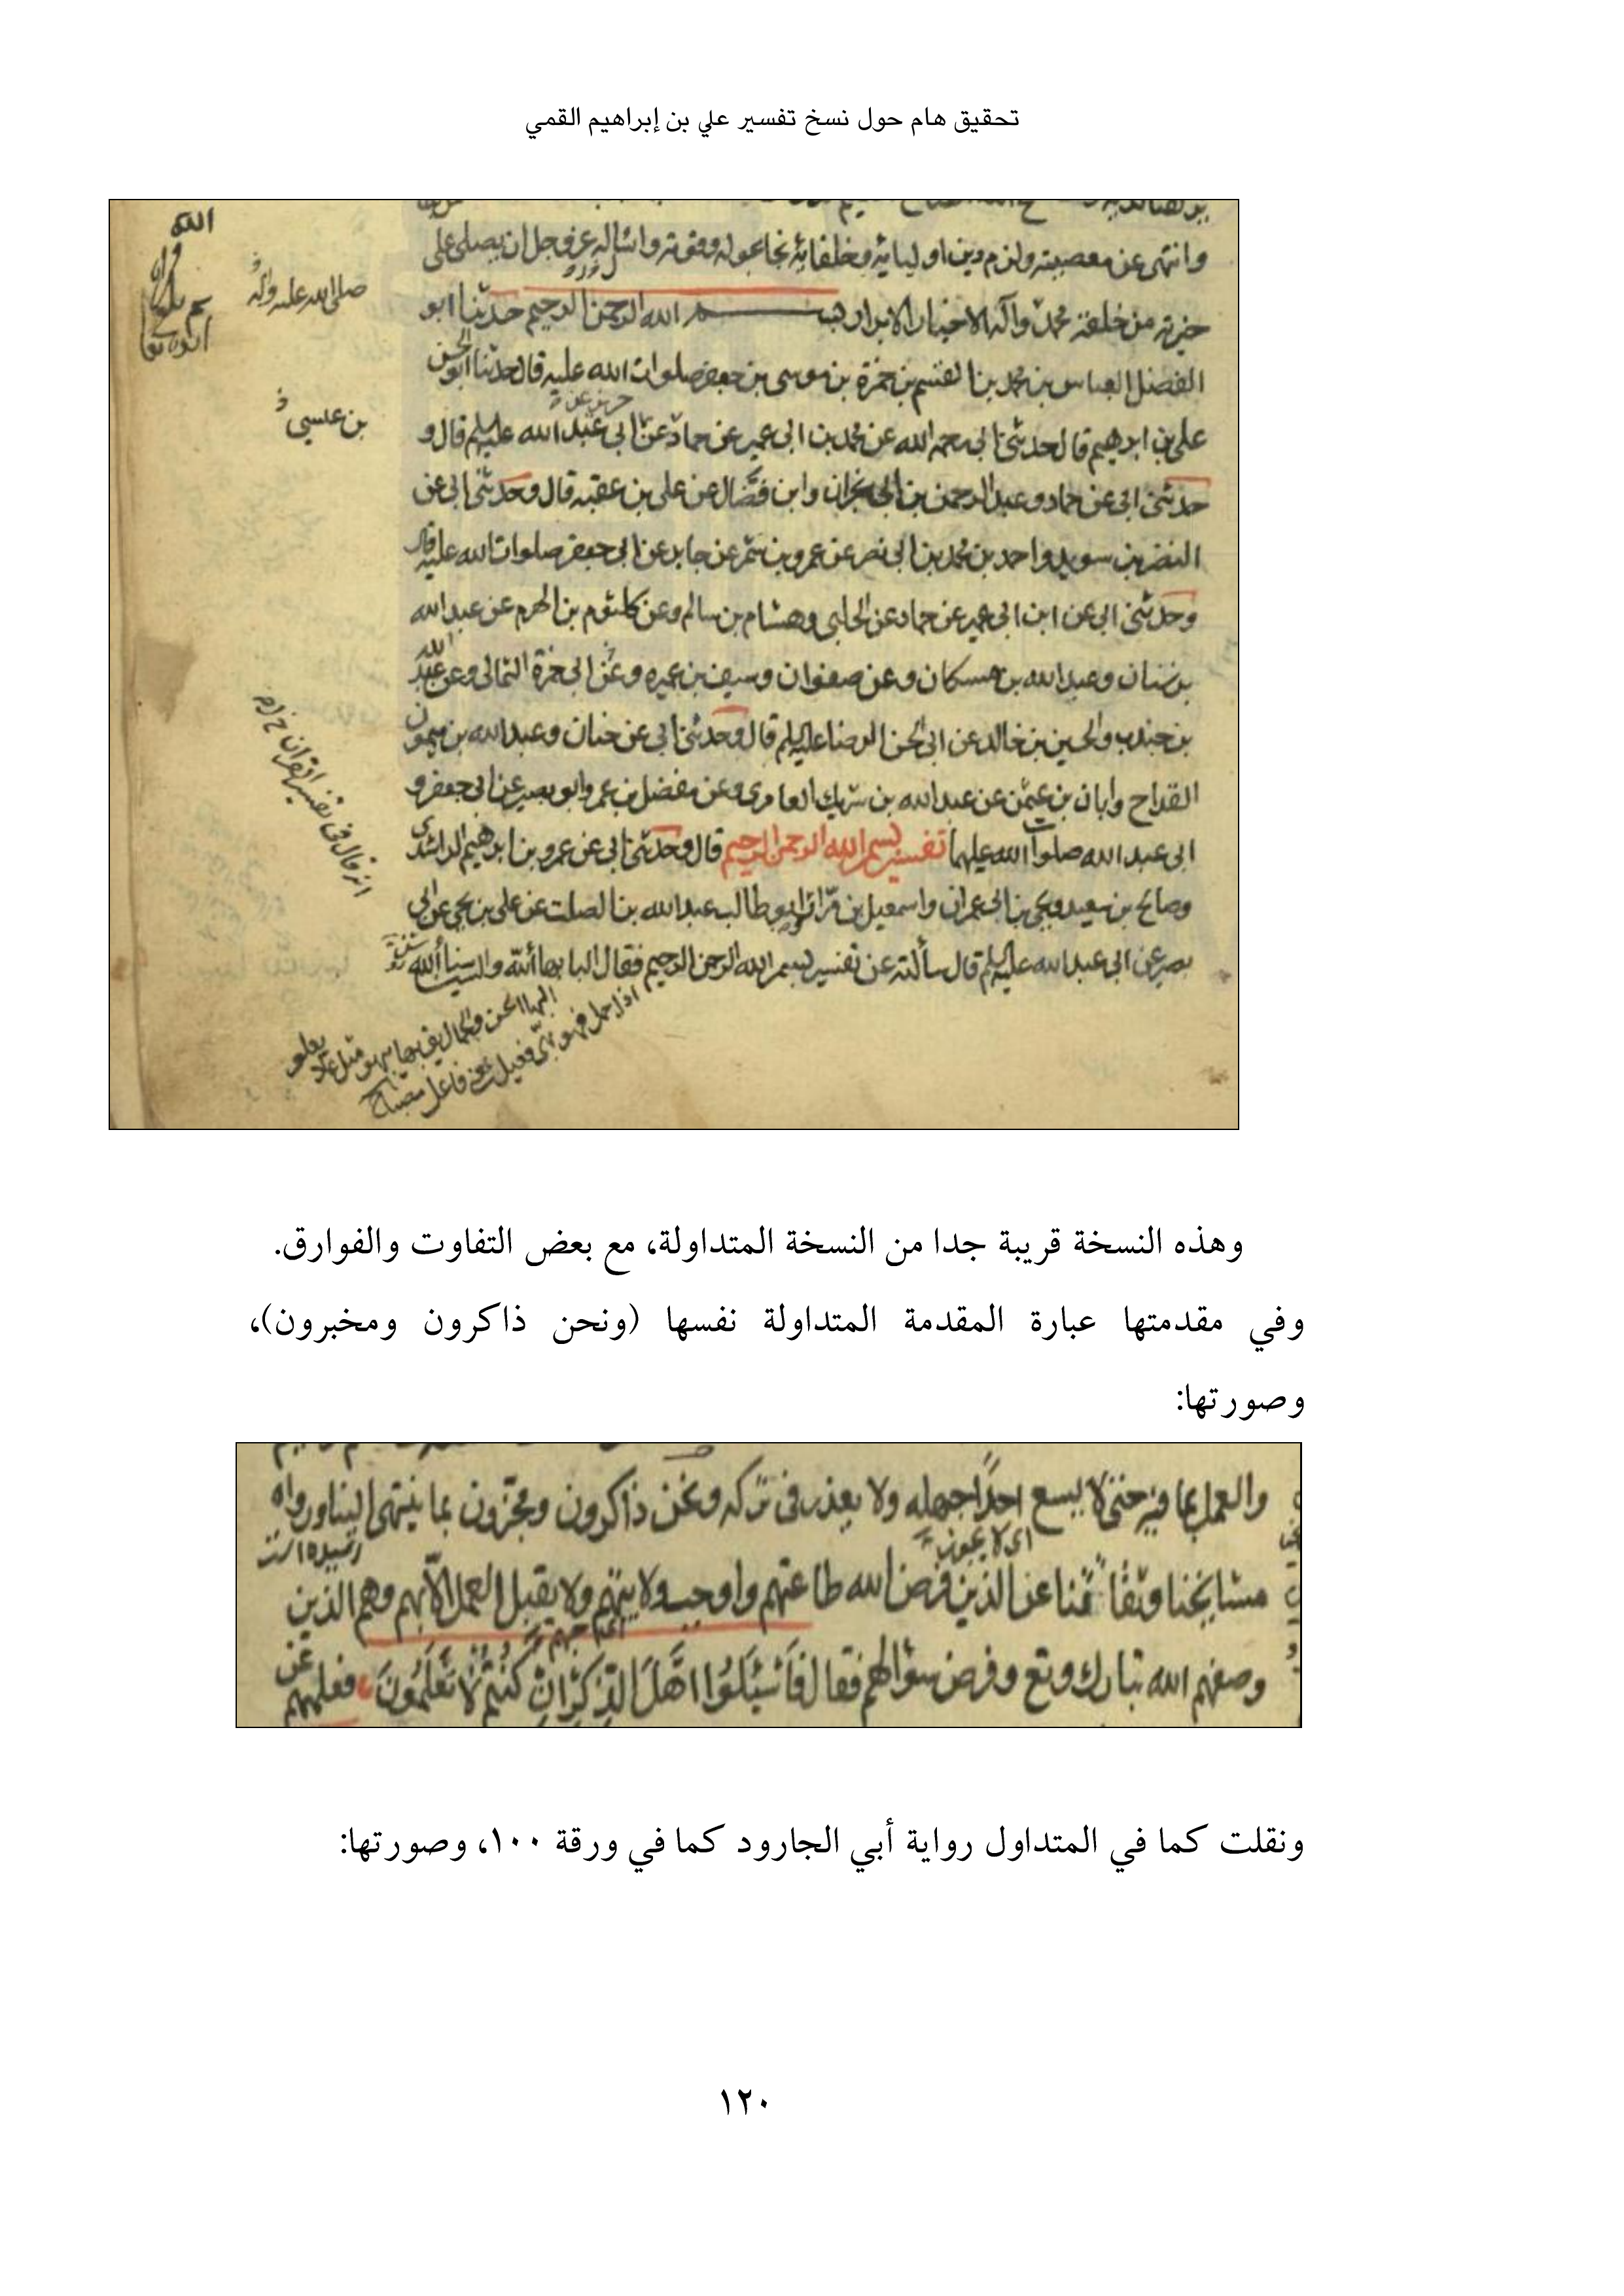 تحقيق هام حول نسخ تفسير علي بن إبراهيم القمي
وانتهى عن معصيته ولزم دين اوليائه وخلفائه نجا بحوله وقوته واسأله عز وجل ان يصلى على
خيرته من خلقه محمد وآله الاخيار الابرار بسم الله الرحمن الرحيم حدثنا ابو
الفضل العباس بن محمد بن القسم بن حمزة بن موسى بن جعفر صلوات الله عليه قال حدثنا ابو الحسن
على بن ابرهيم قال حدثنى ابى رحمه الله عن محمد بن ابى عمير عن حماد عن ابى عبد الله عليه السلم قال و
حدثنى ابى عن حماد و عبد الرحمن بن ابى نجران وابن فضال عن على بن عقبه قال وحدثنى ابى عن
النضر بن سويد واحمد بن محمد بن ابى نصر عن عمرو بن شمر عن جابر عن ابى جعفر صلوات الله عليه قال
وحدثنى ابى عن ابن ابى عمير عن حماد عن الحلبى وهشام بن سالم وعن كلثوم بن الهرم عن عبد الله
بن سنان وعبد الله بن مسكان وعن صفوان وسيف بن عميره وعن ابى حمزة الثمالى وعن عبد الله
بن جندب والحسين بن خالد عن ابى الحسن الرضا عليه السلم قال وحدثنى ابى عن حنان وعبد الله بن ميمون
القداح وابان بن عثمن عن عبد الله بن شريك العامرى وعن مفضل بن عمر وابو بصير عن ابى جعفر و
ابى عبد الله صلوات الله عليهما تفسير بسم الله الرحمن الرحيم قال وحدثنى ابى عن عمرو بن ابرهيم الراشدى
وصالح بن سعيد ويحيى بن ابى عمران واسمعيل بن مرار وابو طالب عبد الله بن الصلت عن على بن يحيى عن ابى
بصير عن ابى عبد الله عليه السلم قال سألته عن تفسير بسم الله الرحمن الرحيم فقال الباء بهاء الله والسين سناء الله
صلى الله عليه وآله
بن عيسى
انه قال فى تفسير القران
وهذه النسخة قريبة جدا من النسخة المتداولة، مع بعض التفاوت والفوارق.
وفي مقدمتها عبارة المقدمة المتداولة نفسها (ونحن ذاكرون ومخبرون)،
وصورتها:
والعمل بما فيه حتى لا يسع احدا جهله ولا يعذر فى تركه ونحن ذاكرون ومخبرون بما ينتهى الينا ورواه
مشايخنا وثقاتنا عن الذين فرض الله طاعتهم واوجب ولايتهم ولا يقبل العمل الا بهم وهم الذين
وصفهم الله تبارك وتع وفرض سؤالهم فقال فَاسْئَلُوا اهْلَ الذِّكْرِ انْ كُنْتُمْ لا تَعْلَمُونَ فعلمهم عن
ونقلت كما في المتداول رواية أبي الجارود كما في ورقة ١٠٠، وصورتها:
١٢٠